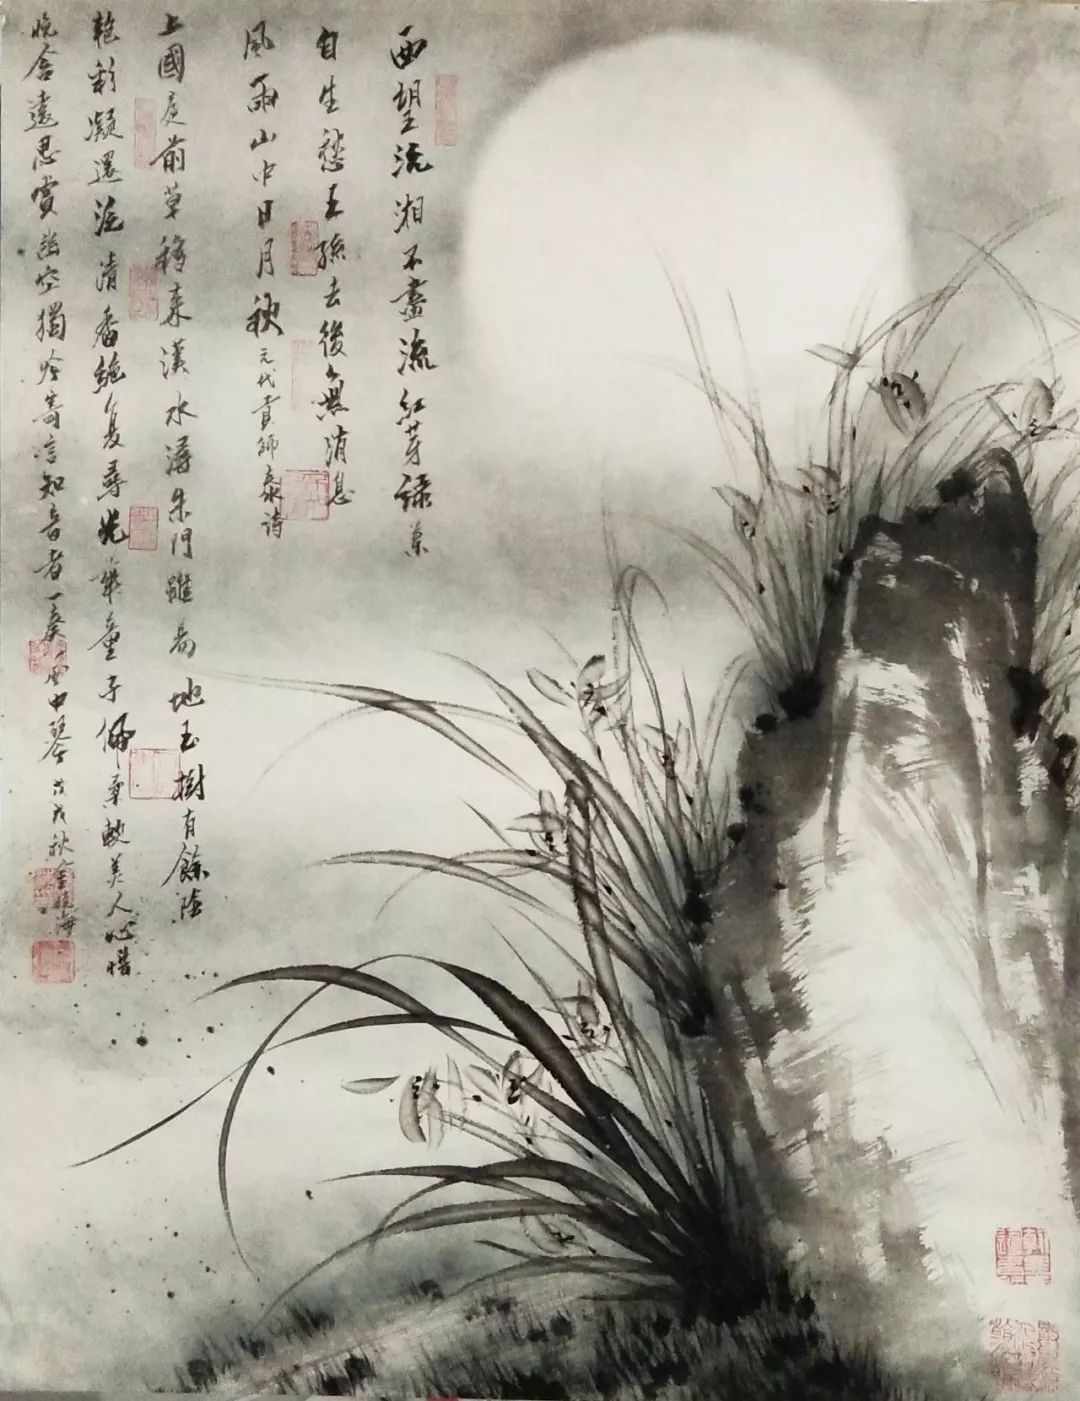 西望沅湘不盡流紅芽綠葉
自生愁王孫去後無消息
風雨山中日月秋元代貢師泰詩
上國庭前草移來漢水潯朱門雖易地玉樹有餘陰
艷彩凝還泛清香絕復尋光華童子佩柔軟美人心惜
晚含遠思賞幽空獨吟寄言知音者一奏風中琴戊戌秋